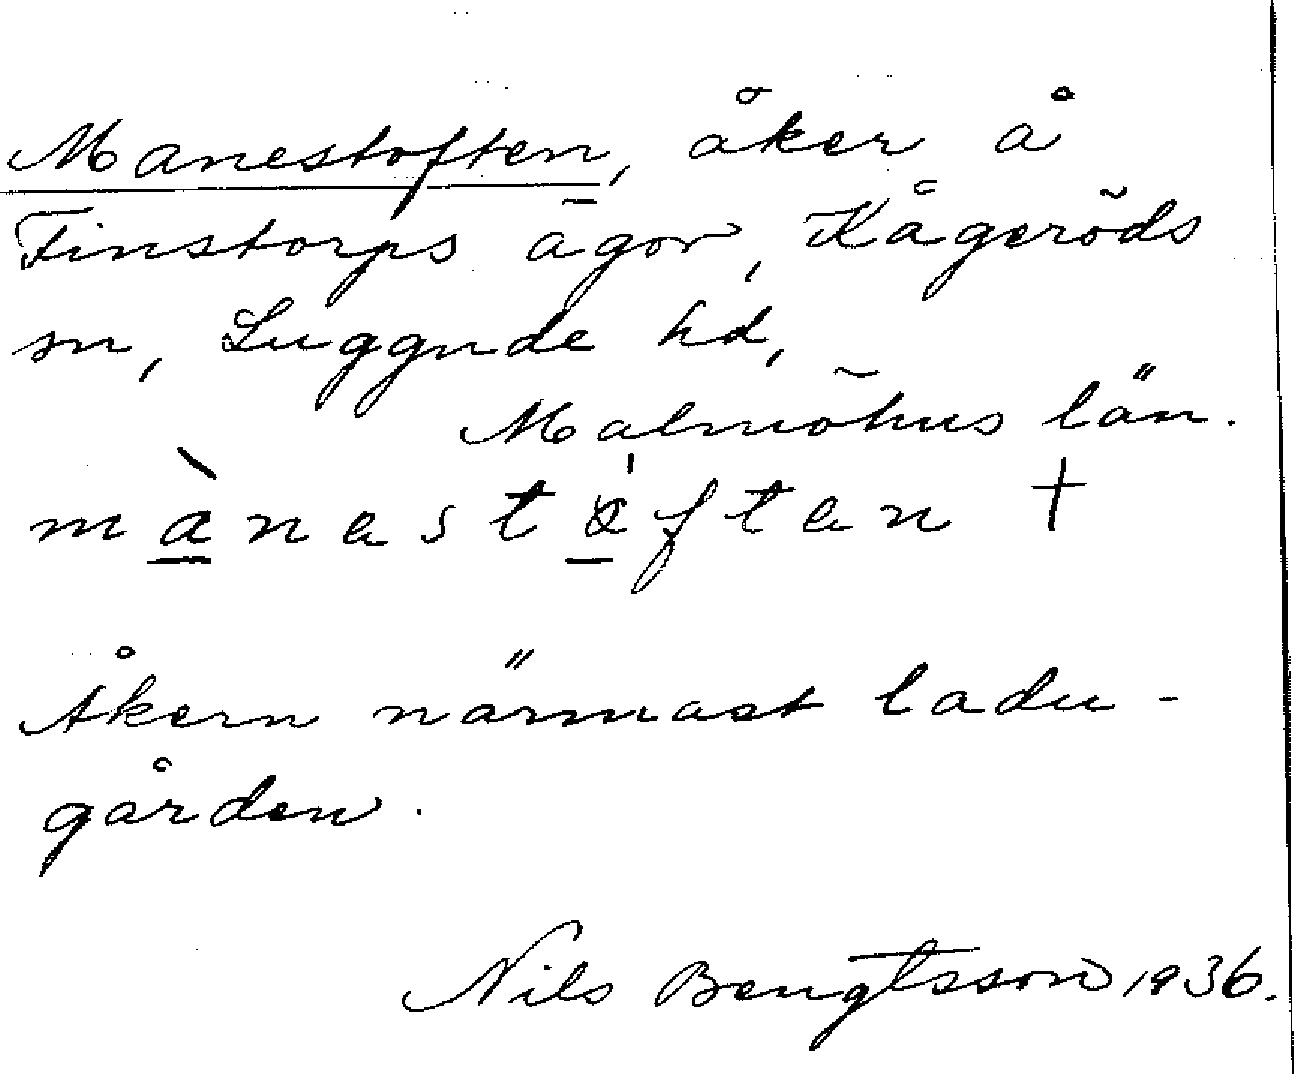 Manestoften, åker å
Finstorps ägor, Kågeröds
sn, Luggude hd,
Malmöhus län.
Åkern närmast ladu-
gården.
Nils Bengtsson 1936.